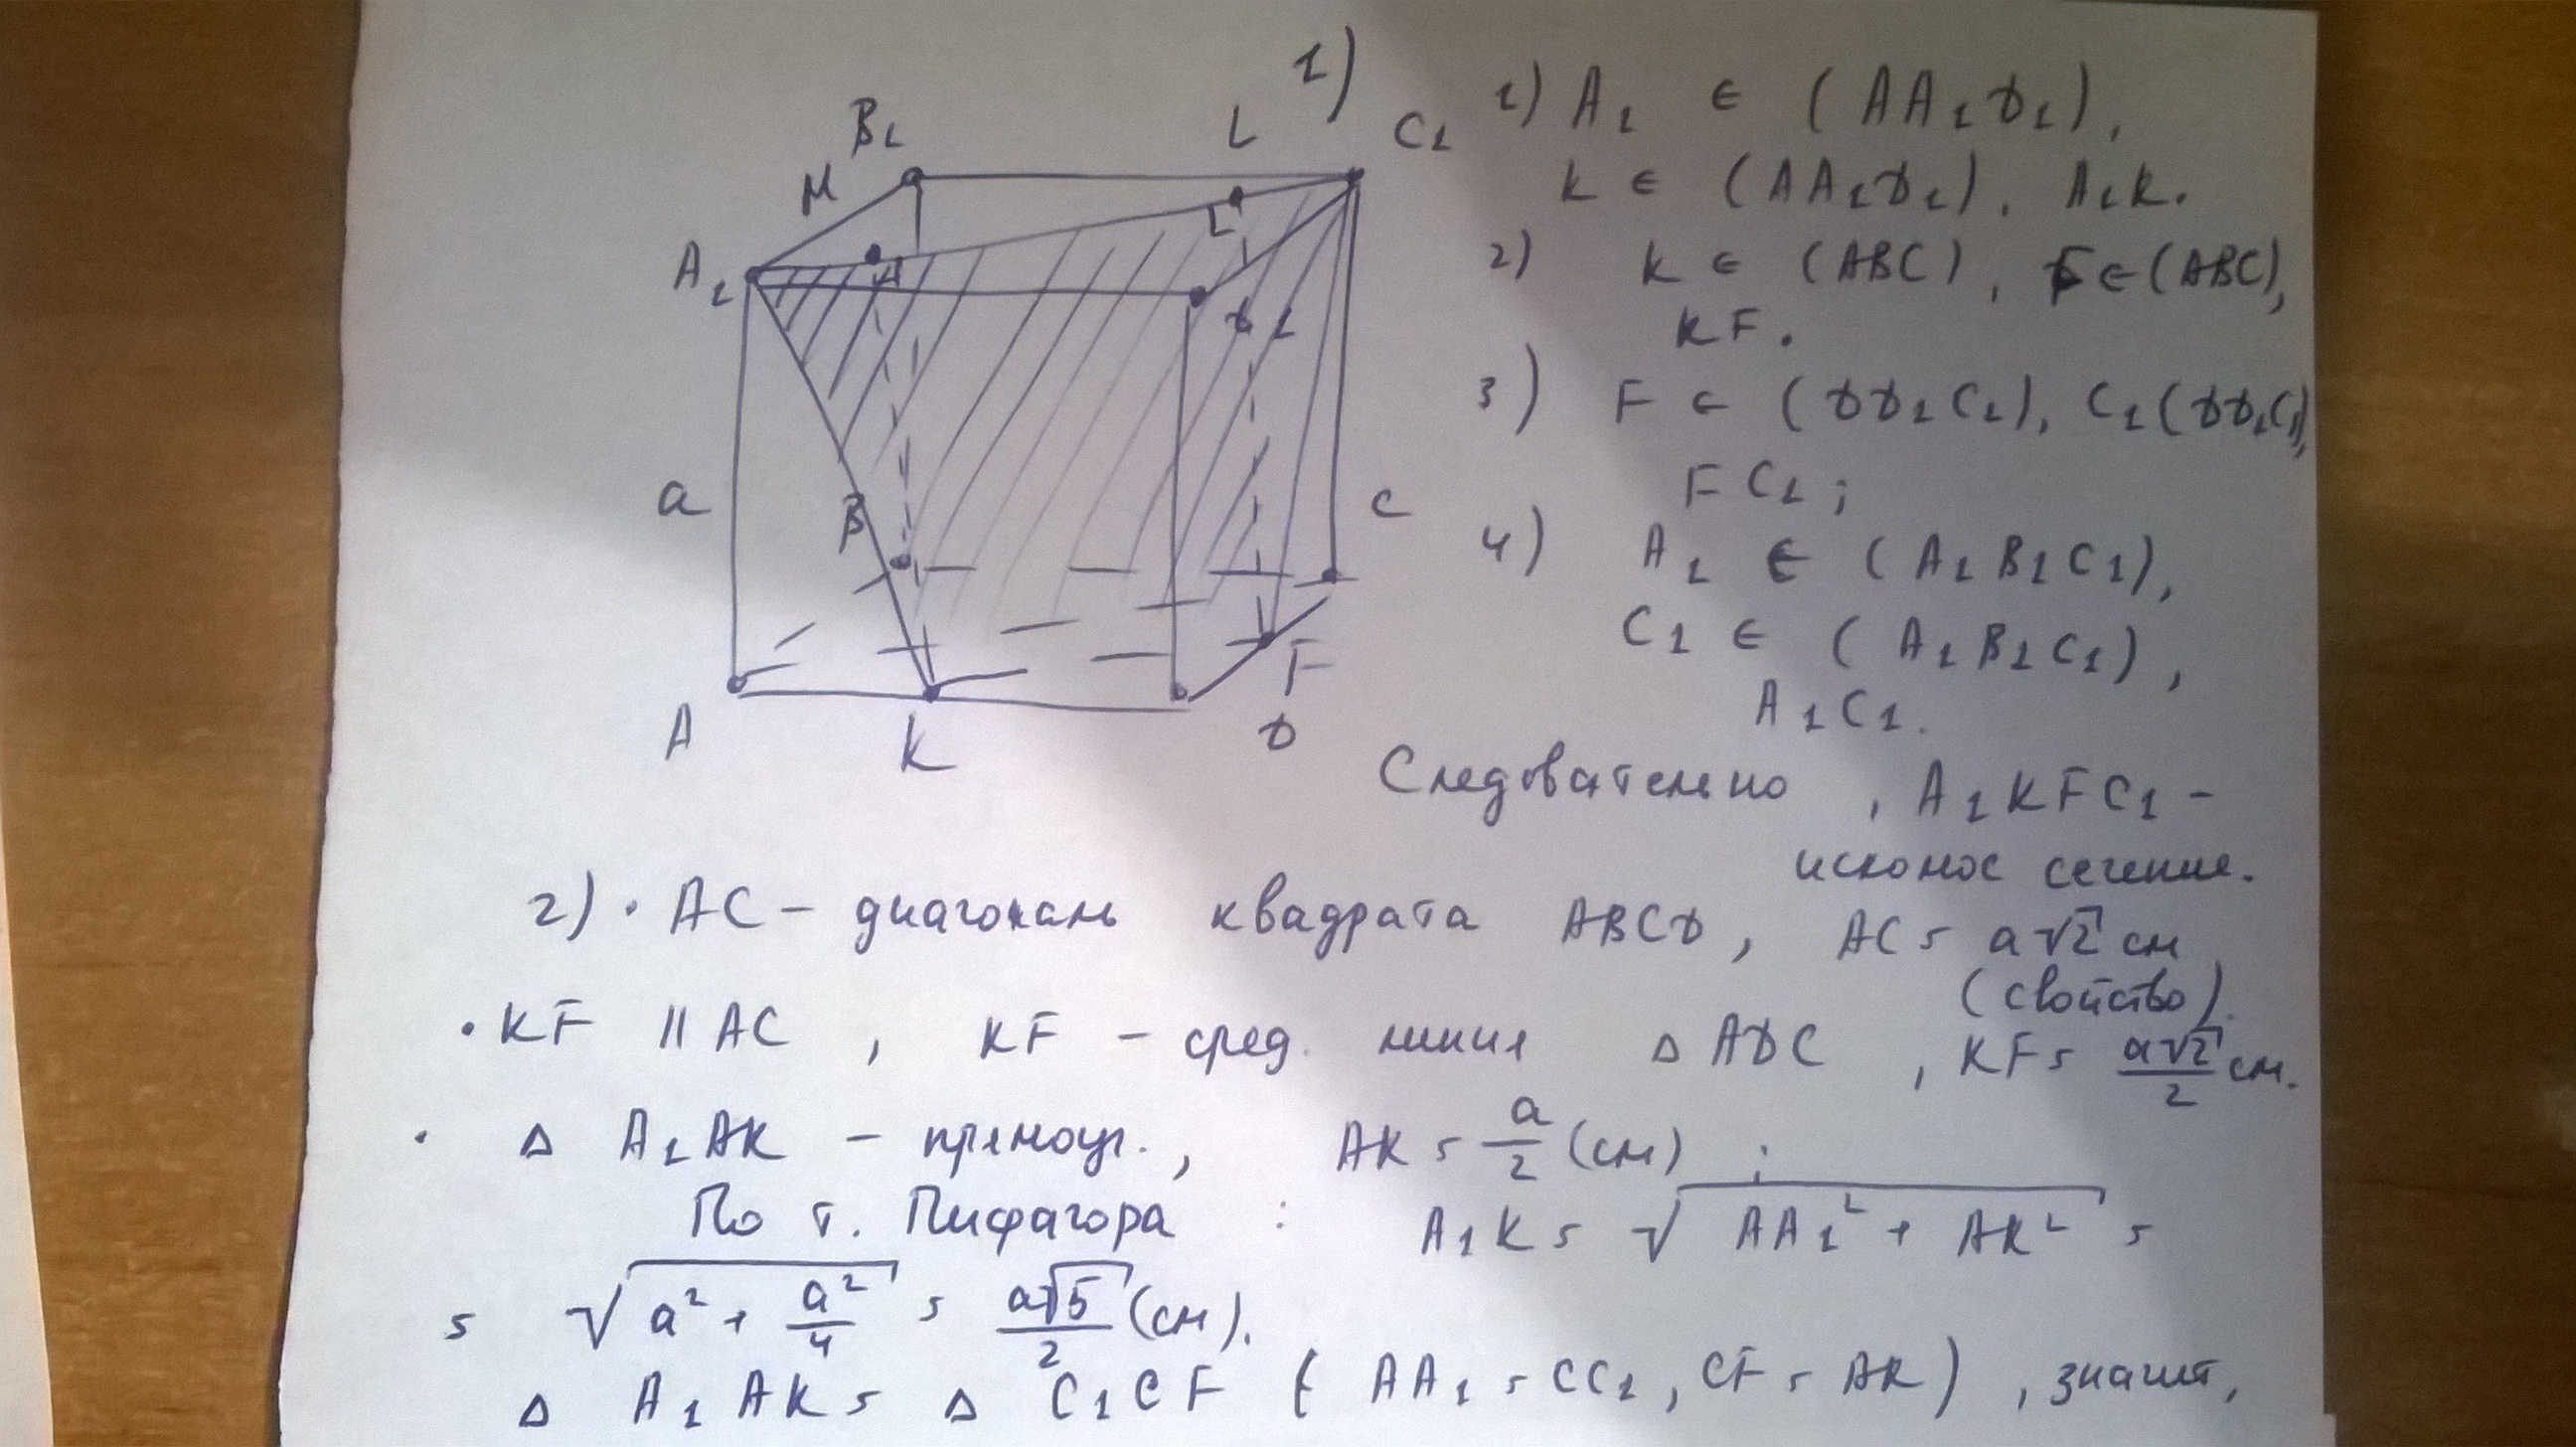 1)
B₁
L
C₁
M
A₁
H
L
D₁
a
B
C
F
A
K
D
1) A₁ ∈ (AA₁D₁),
K ∈ (AA₁D₁). A₁K.
2) K ∈ (ABC), F ∈ (ABC),
KF.
3) F ∈ (DD₁C₁), C₁ (DD₁C₁),
FC₁;
4) A₁ ∈ (A₁B₁C₁),
C₁ ∈ (A₁B₁C₁),
A₁C₁.
Следовательно, A₁KFC₁ –
искомое сечение.
2) • AC – диагональ квадрата ABCD, AC = a√2 см
(свойство).
• KF || AC, KF – сред. линия △ ADC, KF = a√2/2 см.
• △ A₁AK – прямоуг., AK = a/2 (см);
По т. Пифагора : A₁K = √(AA₁² + AK²) =
= √(a² + a²/4) = a√5/2 (см).
△ A₁AK = △ C₁CF ( AA₁ = CC₁, CF = AK), значит,